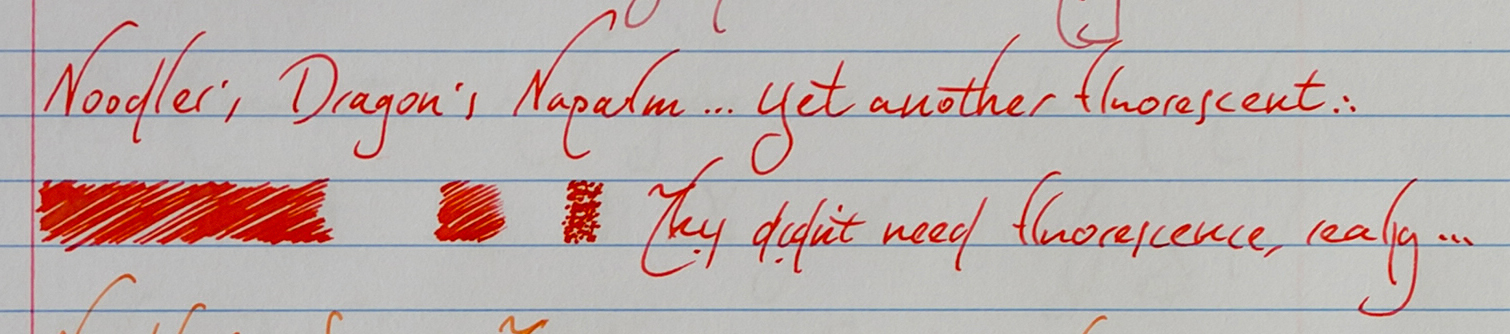 Noodler's Dragon's Napalm... yet another fluorescent...
They didn't need fluorescence, really...